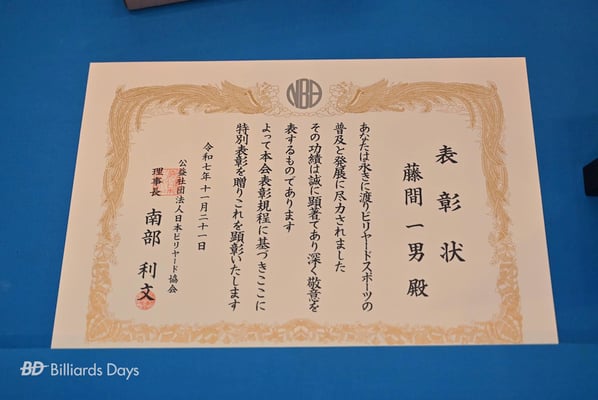 NBA
表彰状
藤間一男殿
あなたは永きに渡りビリヤードスポーツの
普及と発展に尽力されました
その功績は誠に顕著であり深く敬意を
表するものであります
よって本会表彰規程に基づきここに
特別表彰を贈りこれを顕彰いたします
令和七年十一月二十一日
公益社団法人日本ビリヤード協会
理事長 南部利文
BD Billiards Days